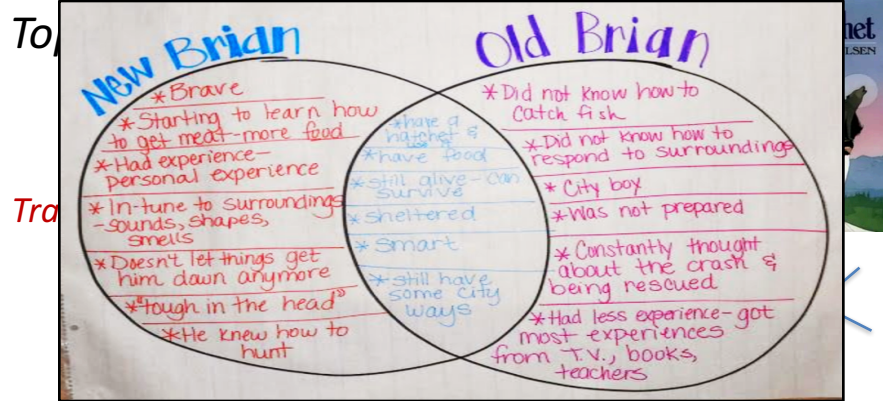 To
New Brian
Old Brian
het
LSEN
* Brave
* Starting to learn how
to get meat-more food
* Had experience-
personal experience
* In-tune to surroundings
-sounds, shapes,
smells
* Doesn't let things get
him down anymore
* "tough in the head"
* He knew how to
hunt
* have a
hatchet &
* have food
* still alive-can
survive
* sheltered
* smart
* still have
some city
ways
* Did not know how to
catch fish
* Did not know how to
respond to surroundings
* City boy
* Was not prepared
* Constantly thought
about the crash &
being rescued
* Had less experience-got
most experiences
from T.V., books,
teachers
Tra